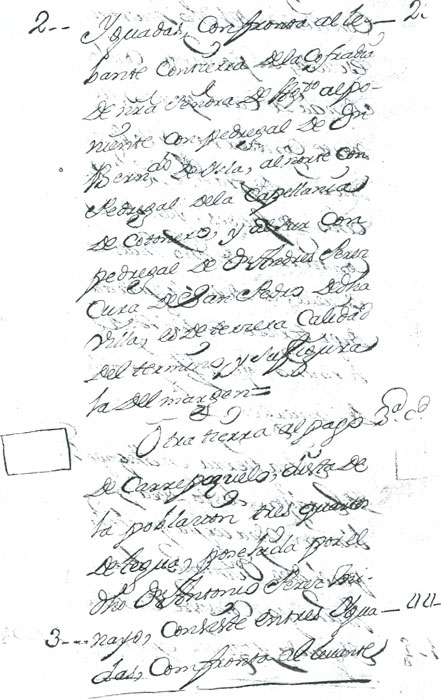 2-- Yguadas, Confronta al le- 2.
bante Contierra dela Cofradia
De nra Señora De Agto al po-
niente con pedregal De Dn
Berndo De Vila, al norte con
Pedregal dela Capellania
De Cotonero, y al sur con
pedregal De Dn Andres Perez
Cura De San Pedro De dha
Villa, es De tercera Calidad
Del termino, y su figura
la Del margen=
Otra tierra al pago 3a Cd
De Carre pequeño, dista De
la poblacion tres quartos
De legua, poseida por el
dho Dn Antonio Perez
nayo, Conseste entres Ygua- 44-
3-- das, Confronta al levante